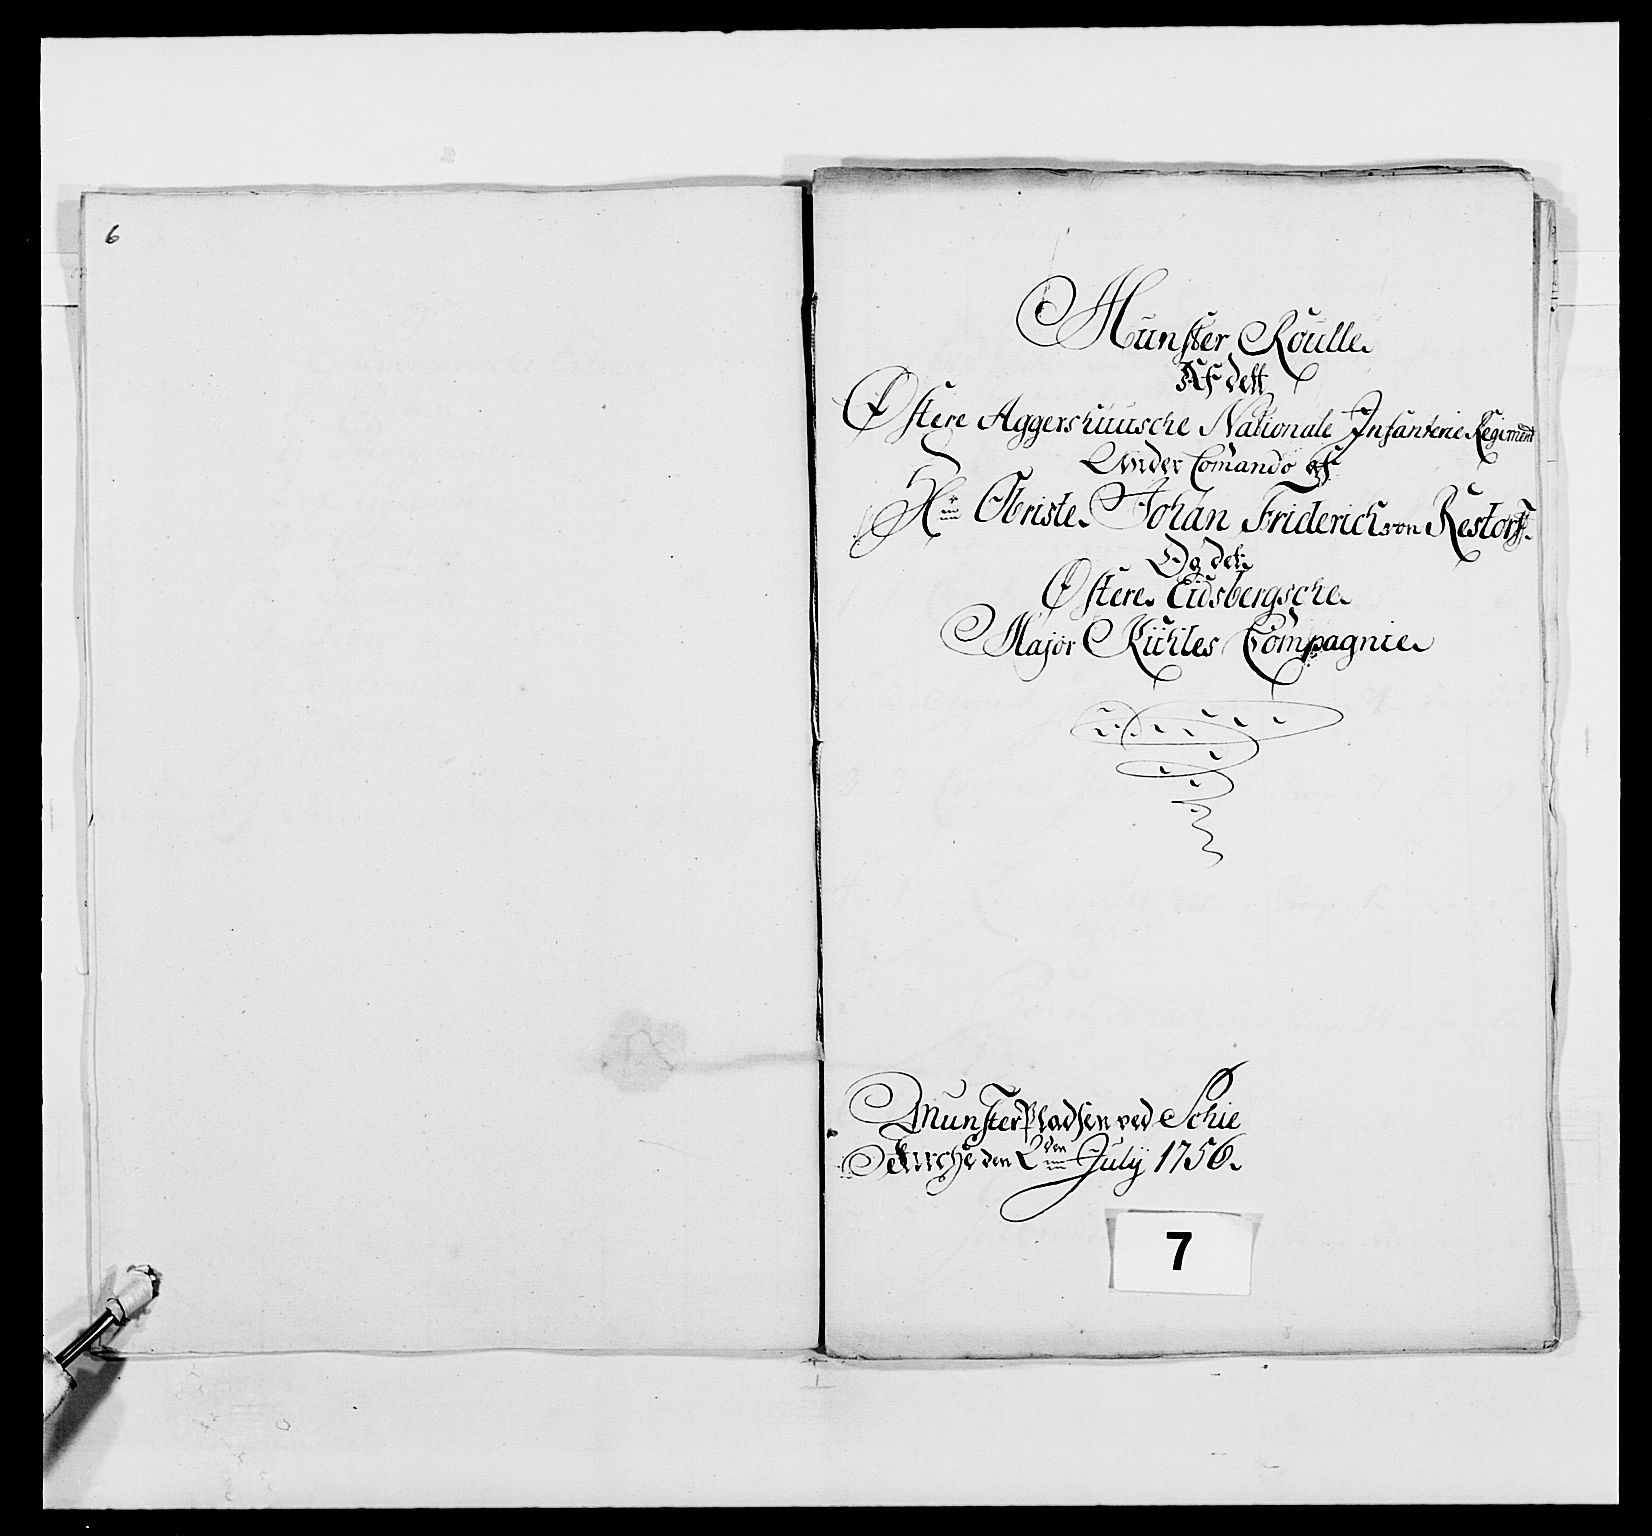 6
Munster Roulle
Af dett
Østere Aggershuusche Nationale Infanterie Regiment
Under Comando af
Hr Obriste Johan Friderich von Restorff
Og det
Østere Eidsbergsche
Major Kühles Compagnie
MunsterPladsen ved Schie
Kirche den 2den July 1756.
7